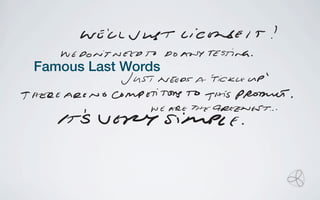 WE'LL JUST LICENSE IT!
WE DON'T NEED TO DO ANY TESTING.
Famous Last Words
JUST NEEDS A 'TICKLE UP'
THERE ARE NO COMPETITORS TO THIS PRODUCT.
WE ARE THE GREENEST...
IT'S VERY SIMPLE.